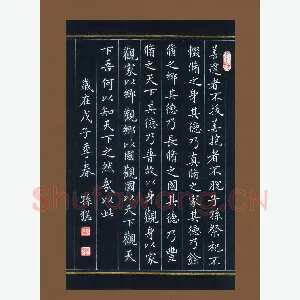 善建者不拔善抱者不脱子孫祭祀不
輟脩之身其德乃真脩之家其德乃餘
脩之鄉其德乃長脩之國其德乃豐
脩之天下其德乃普故以身觀身以家
觀家以鄉觀鄉以國觀國以天下觀天
下吾何以知天下之然哉以此
歲在戊子季春 孫